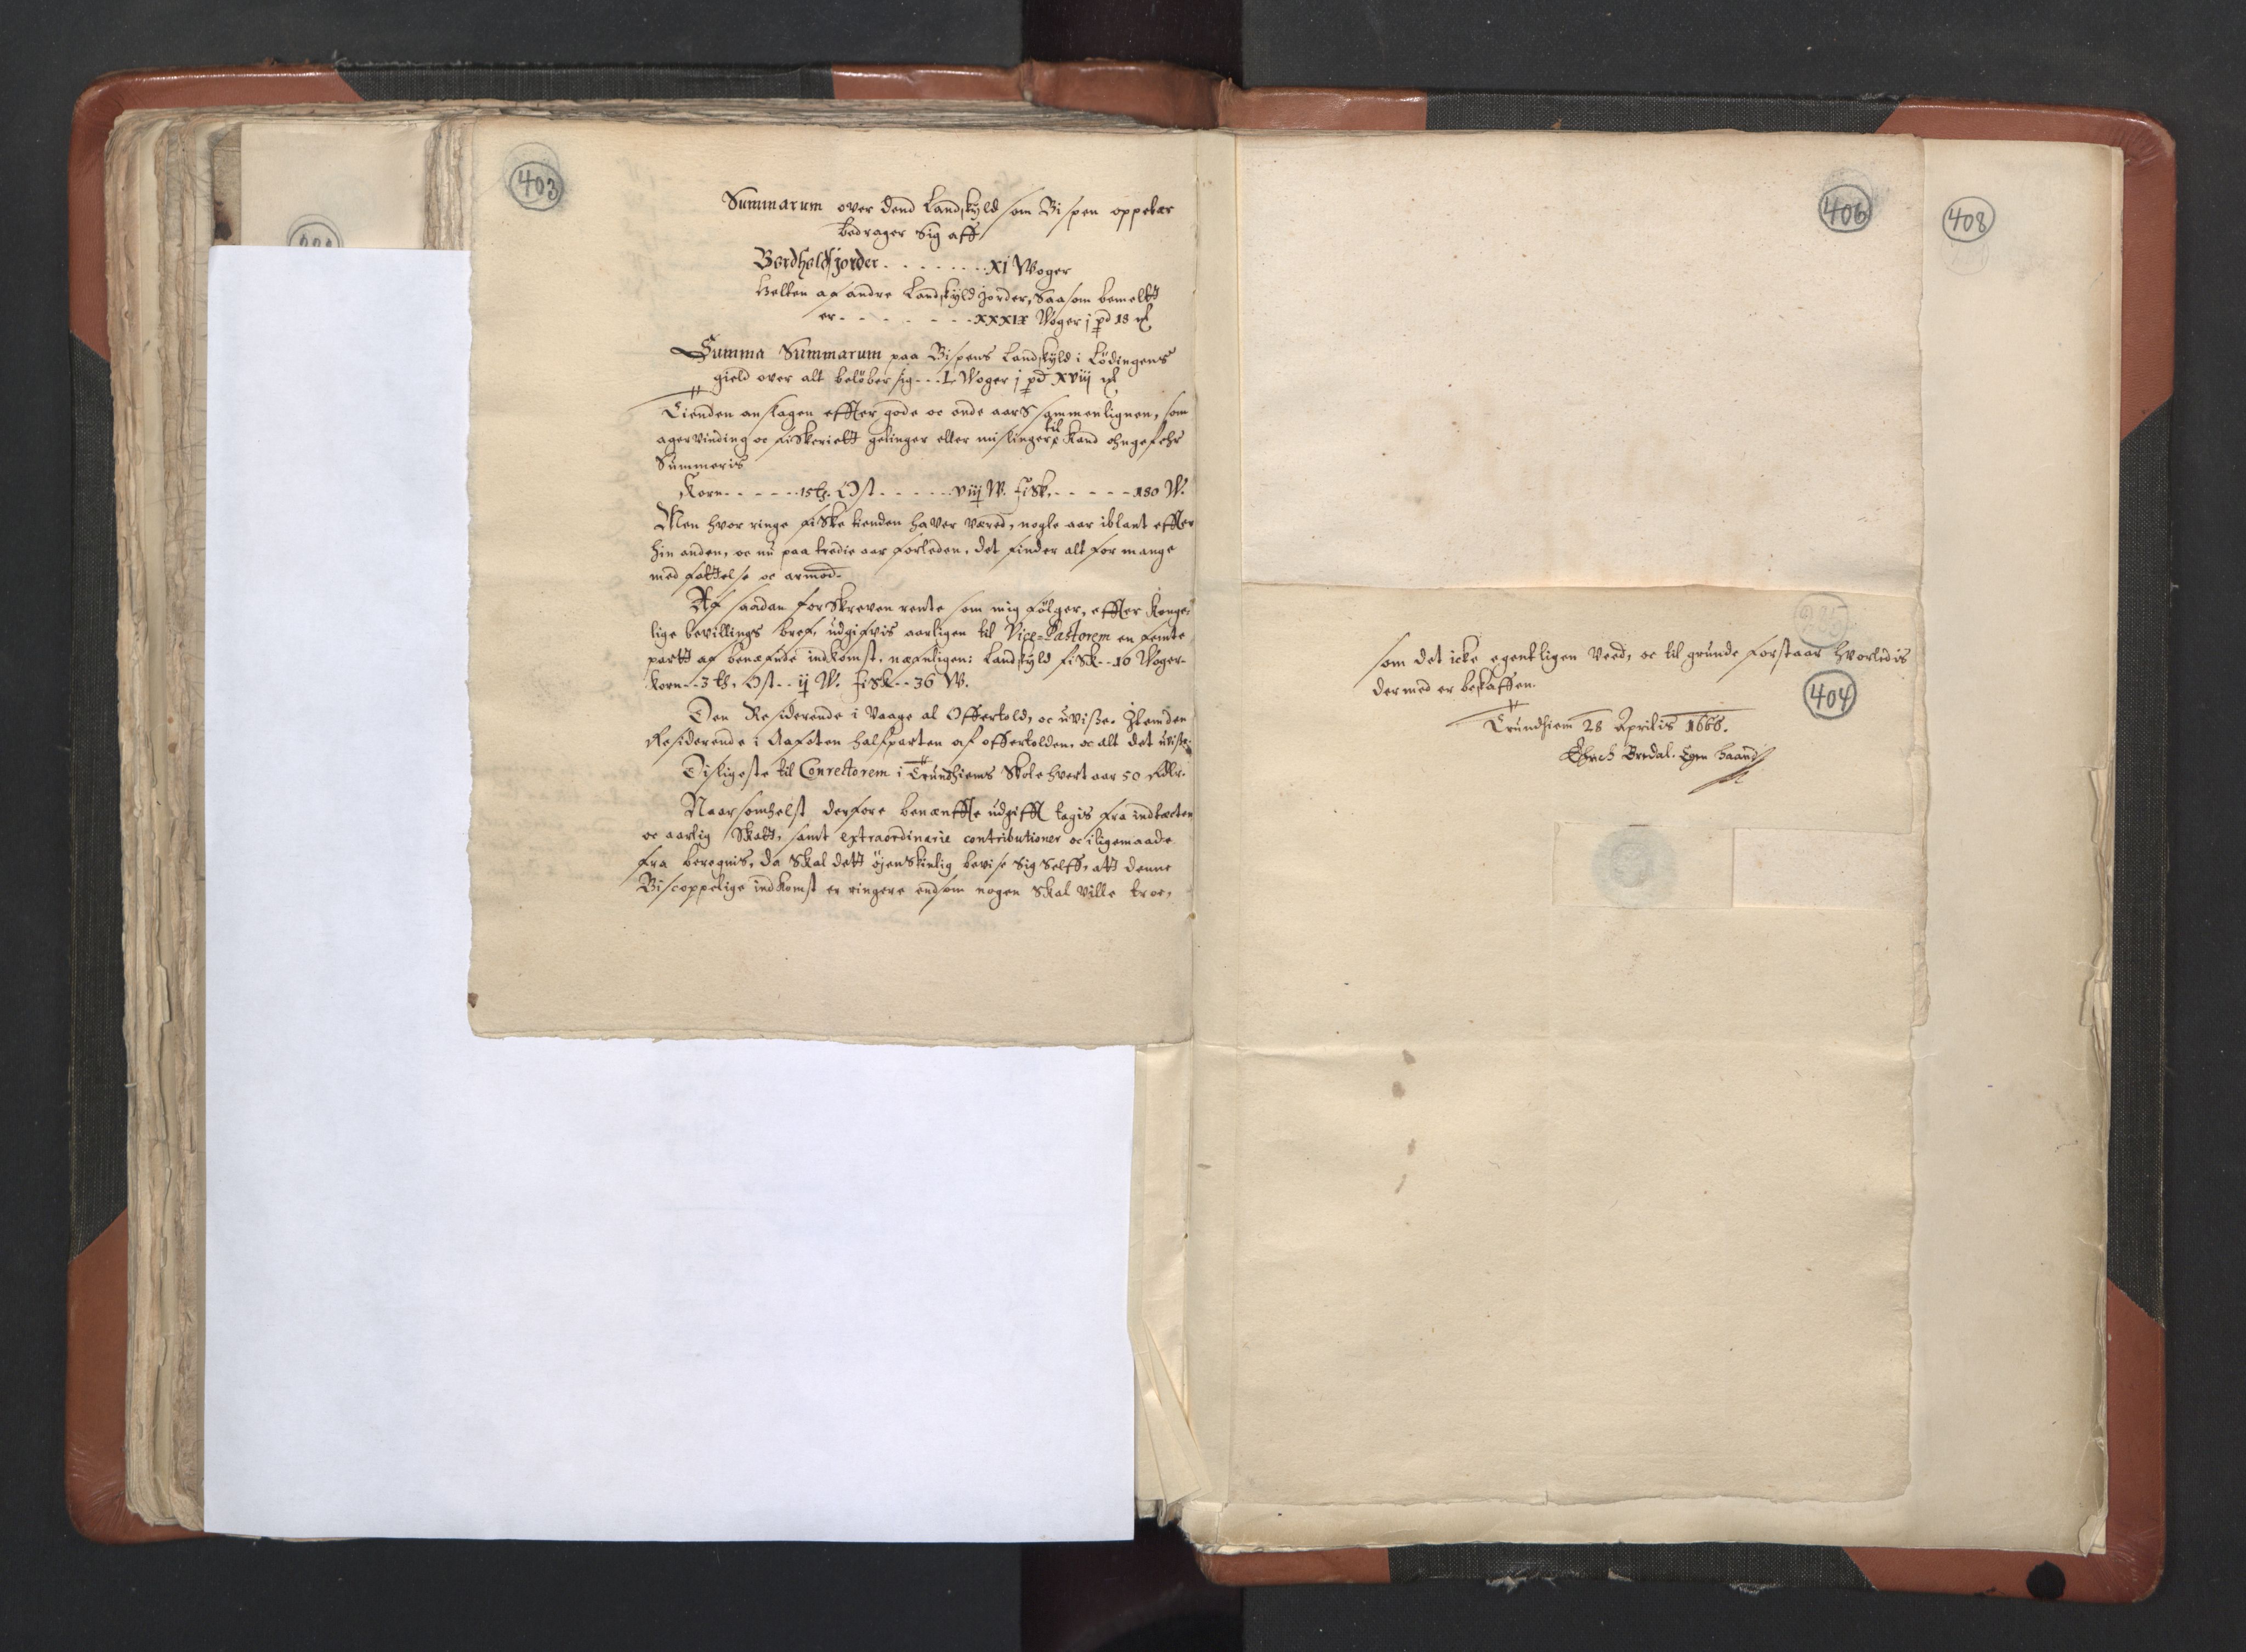 403
Summarum over dend Landskyld som Bispen oppebær
bedrager sig aff
Bordholdsjorder . . . . . . . . XI Woger
Velten af andre Landskyld jorder, saasom bemeltt
er - - - - - - - XXXIX Woger j pd 18 
Summa Summarum paa Bispens Landskyld i Lödingens
gield over alt belöber sig - - - L Woger j pd XViij 
Tienden anslagen effter gode oc onde aars sammenlignen, som
agervinding oc fiskeriett gelinger eller mislinger, til kand ohngefehr
Summeris
Korn - - - - - 15 tr. Ost - - - - - Viij W. Fisk, - - - - - 180 W.
Men hvor ringe fiske tienden haver været, nogle aar iblant effter
hin anden, oc nu paa tredie aar forleden, det finder alt for mange
med fattelse oc armod.
Af saadan forskreven rente som mig fölger, effter Konge-
lige bevillings bref, udgifvis aarligen til Vice-Pastorem en femte
partt af benæfnde indkomst, næfnligen: Landskyld fisk - - 10 Woger
korn - - 3 tr. Ost - - ij W. Fisk - - 36 W.
Den Residerende i Vaage al Offertold, oc uvisse. Item den
Residerende i Aafoten halfparten af offertolden, oc alt det uvisse.
Disligeste til Conrectorem i Trundhiems Skole hvert aar 50 Rdlr.
Naarsomhelst derfore benæntte udgifft tagis fra indtæcten
oc aarlig Skatt, samt extraordinarie contributioner oc iligemaade
fra beregnis, da skal dett öjenskinlig bevise sig selff, att denne
Biscoppelige indkomst er ringere end som nogen skal ville troe,
406
408
som det icke egentligen veed, oc til grunde forstaar hvorledis
dermed er beskaffen.
404
Trundhiem 28 Aprilis 1666.
Erich Bredal. Egen haand